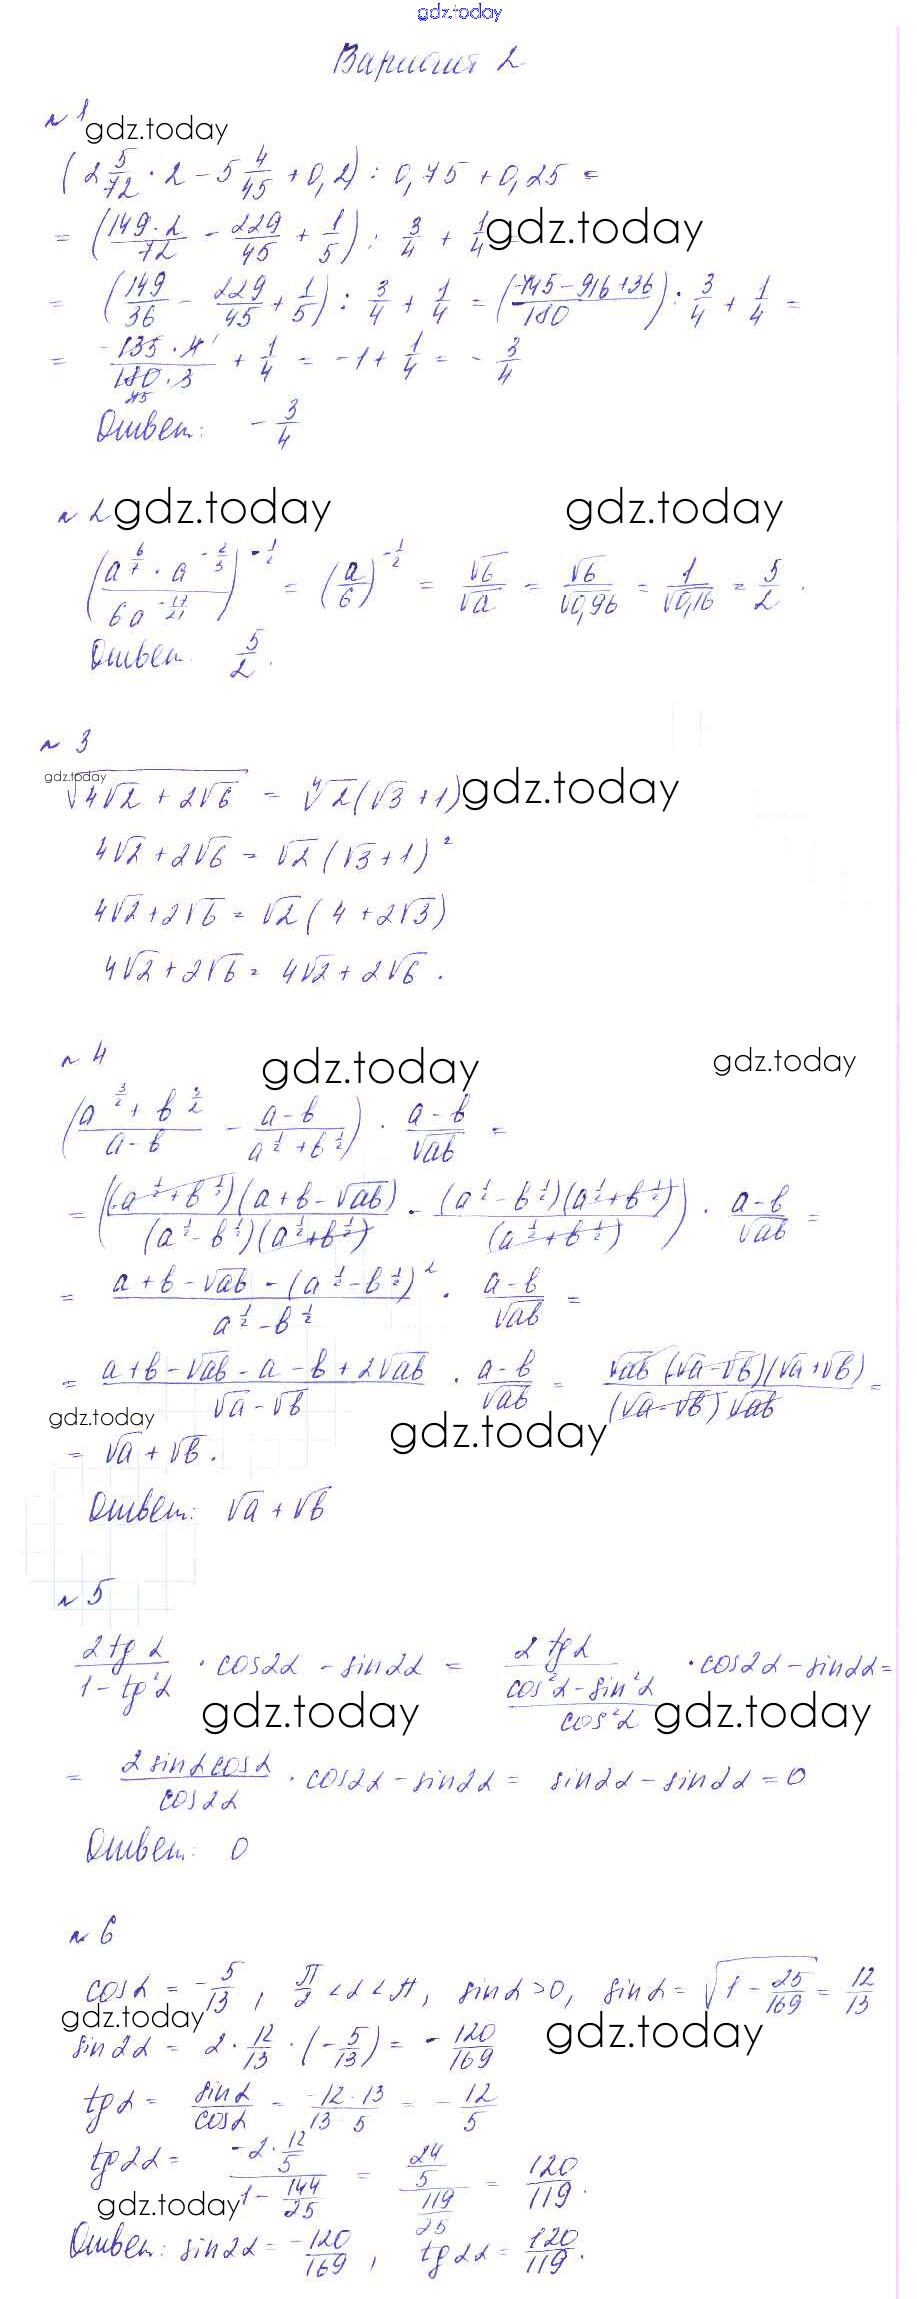 gdz.today
Вариант 2
№ 1
gdz.today
(2 5/72 · 2 − 5 4/45 + 0,2) : 0,75 + 0,25 =
= (149·2/72 − 229/45 + 1/5) : 3/4 + 1/4 gdz.today
= (149/36 − 229/45 + 1/5) : 3/4 + 1/4 = (745−916+36/180) : 3/4 + 1/4 =
= −135·4/180·3 + 1/4 = −1 + 1/4 = −3/4
Ответ: −3/4
№ 2 gdz.today gdz.today
(a^(6/7) · a^(−2/3) / 6a^(−17/21))^(−1/2) = (a/6)^(−1/2) = √6/√a = √6/√0,96 = 1/√0,16 = 5/2.
Ответ: 5/2.
№ 3
gdz.today
√(4√2 + 2√6) = ⁴√2(√3 + 1) gdz.today
4√2 + 2√6 = √2(√3 + 1)²
4√2 + 2√6 = √2(4 + 2√3)
4√2 + 2√6 = 4√2 + 2√6.
№ 4
gdz.today gdz.today
(a^(3/2) + b^(3/2) / a−b − a−b / a^(1/2) + b^(1/2)) · a−b/√ab =
= ((a^(1/2) + b^(1/2))(a + b − √ab) / (a^(1/2) − b^(1/2))(a^(1/2) + b^(1/2)) − (a^(1/2) − b^(1/2))(a^(1/2) + b^(1/2)) / (a^(1/2) + b^(1/2))) · a−b/√ab =
= a + b − √ab − (a^(1/2) − b^(1/2))² / a^(1/2) − b^(1/2) · a−b/√ab =
= a + b − √ab − a − b + 2√ab / √a − √b · a−b/√ab = √ab(√a−√b)(√a+√b) / (√a−√b)√ab =
gdz.today gdz.today
= √a + √b.
Ответ: √a + √b
№ 5
2tgα/1−tg²α · cos2α − sin2α = 2tgα/(cos²α−sin²α/cos²α) · cos2α − sin2α =
gdz.today gdz.today
= 2sinαcosα/cos2α · cos2α − sin2α = sin2α − sin2α = 0
Ответ: 0
№ 6
cosα = −5/13, π/2 < α < π, sinα > 0, sinα = √(1 − 25/169) = 12/13
gdz.today gdz.today
sin2α = 2 · 12/13 · (−5/13) = −120/169
tgα = sinα/cosα = −12·13/13·5 = −12/5
tg2α = −2·12/5 / 1−144/25 = 24/5 / 119/25 = 120/119.
gdz.today
Ответ: sin2α = −120/169, tg2α = 120/119.